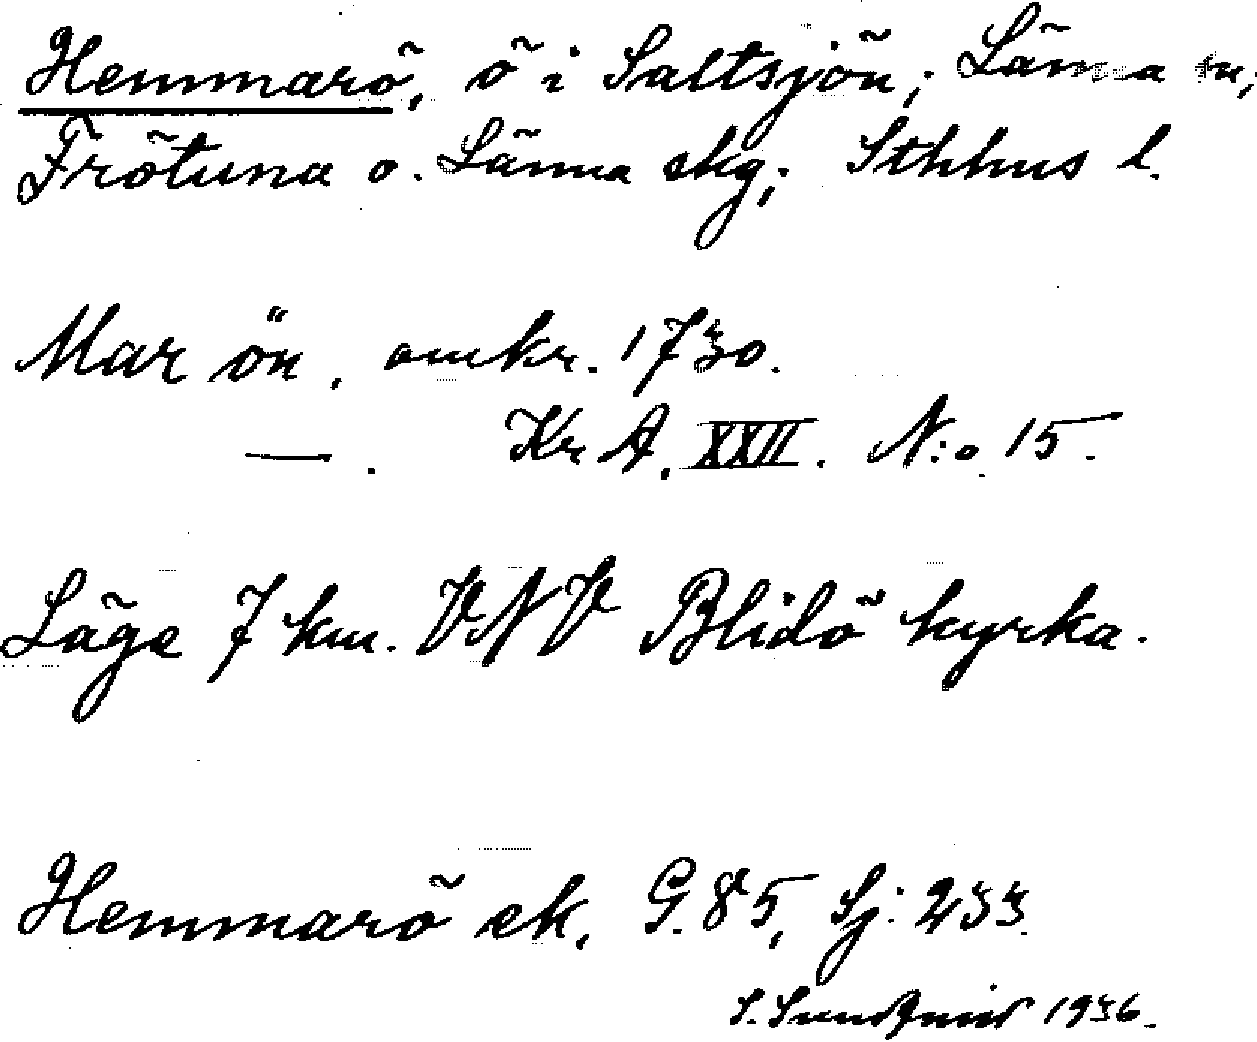 Hemmarö, ö i Saltsjön; Länna sn,
Frötuna o. Länna skg; Sthhus l.
Mar ön, omkr. 1730.
—. Kr A. XXII. N:o 15.
Läge 7 km. VNV Blidö kyrka.
Hemmarö ek. G. 85, Sj: 233.
S. Sundqvist 1936.